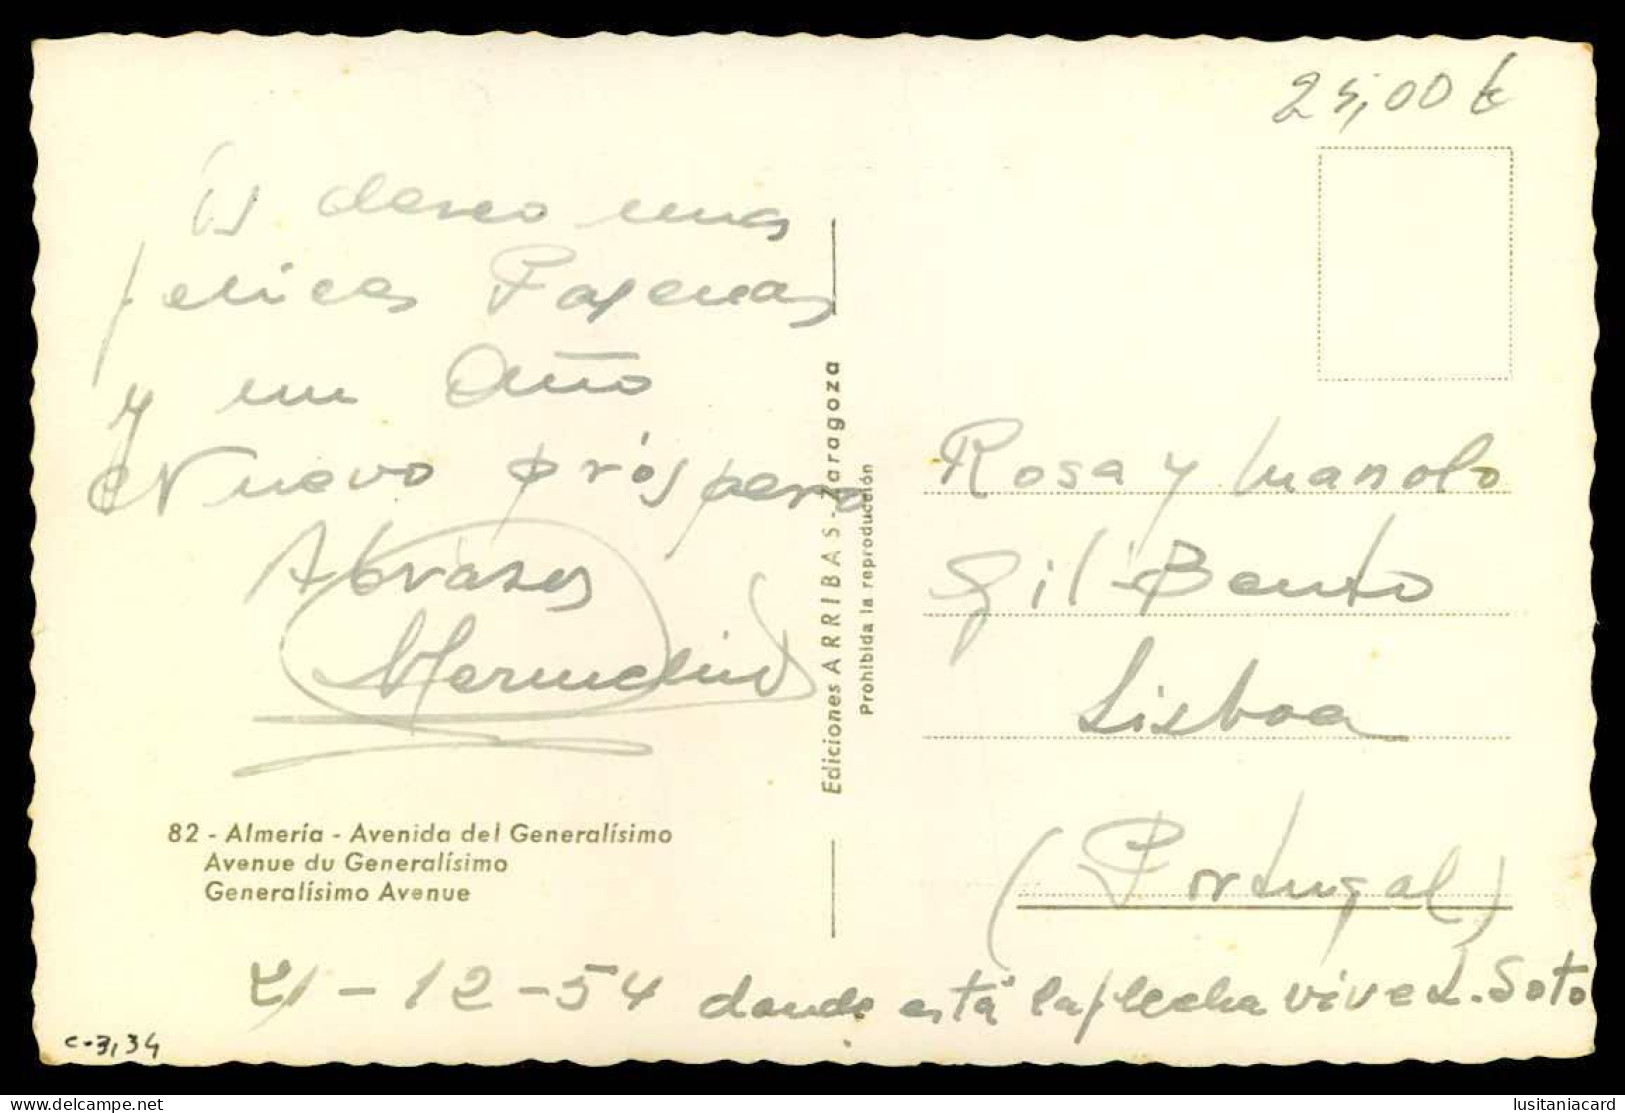 Os deseo unas
felices Pascuas
y un Año
Nuevo próspero
Abrazos
82 - Almería - Avenida del Generalísimo
Avenue du Generalísimo
Generalísimo Avenue
21-12-54 donde está la flecha vive L. Soto
c-3,34
Ediciones ARRIBAS - Zaragoza
Prohibida la reproducción
25,00 €
Rosa y Manolo
Gil Bento
Lisboa
(Portugal)
Image hosted on:
lusitaniacard